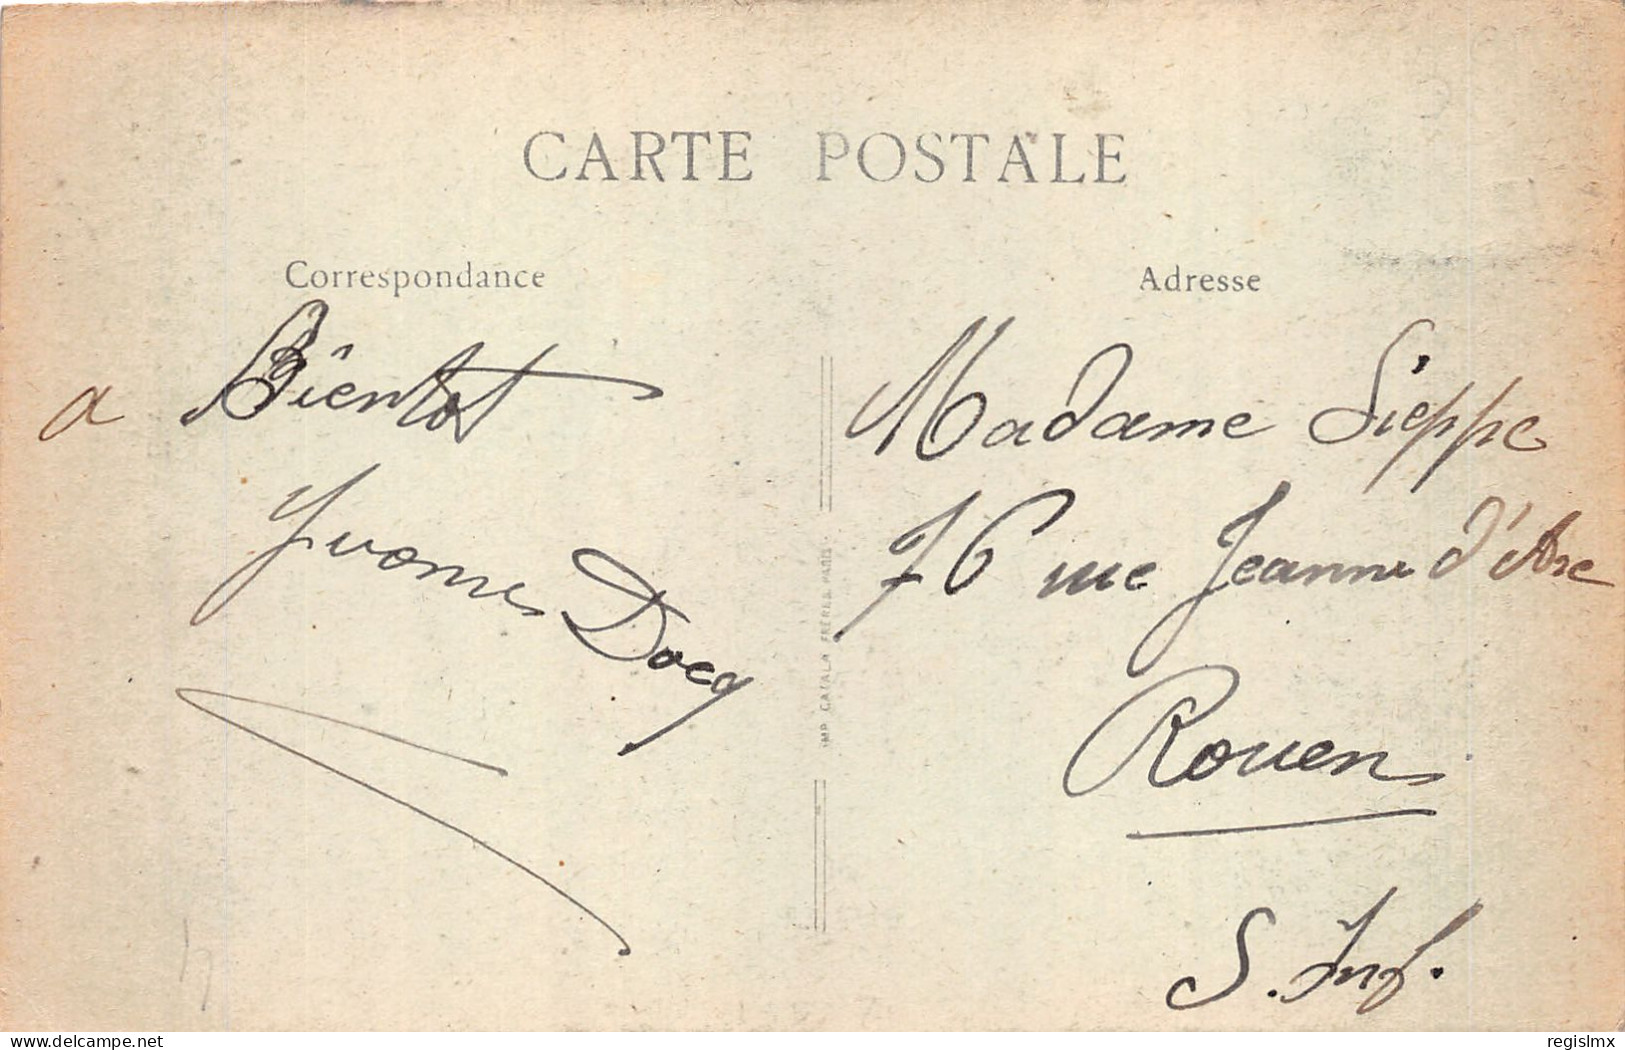 CARTE POSTALE
Correspondance
a Bientot
Yvonne
Adresse
Madame Sieppe
76 rue Jeanne d'Arc
Rouen
S. Inf.
IMP. CATALA FRÈRES PARIS
delcampe.net
regislmx